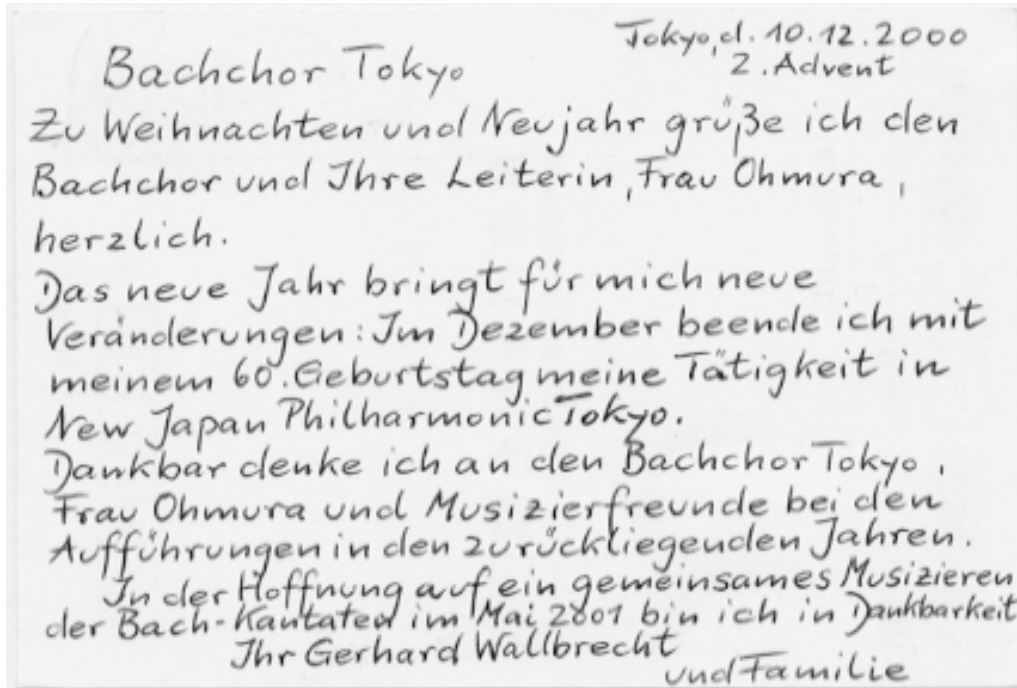 Tokyo, d. 10.12.2000
2. Advent
Bachchor Tokyo
Zu Weihnachten und Neujahr grüße ich den
Bachchor und Ihre Leiterin, Frau Ohmura,
herzlich.
Das neue Jahr bringt für mich neue
Veränderungen: Im Dezember beende ich mit
meinem 60. Geburtstag meine Tätigkeit in
New Japan Philharmonic Tokyo.
Dankbar denke ich an den Bachchor Tokyo,
Frau Ohmura und Musizierfreunde bei den
Aufführungen in den zurückliegenden Jahren.
In der Hoffnung auf ein gemeinsames Musizieren
der Bach-Kantaten im Mai 2001 bin ich in Dankbarkeit
Ihr Gerhard Wallbrecht
und Familie